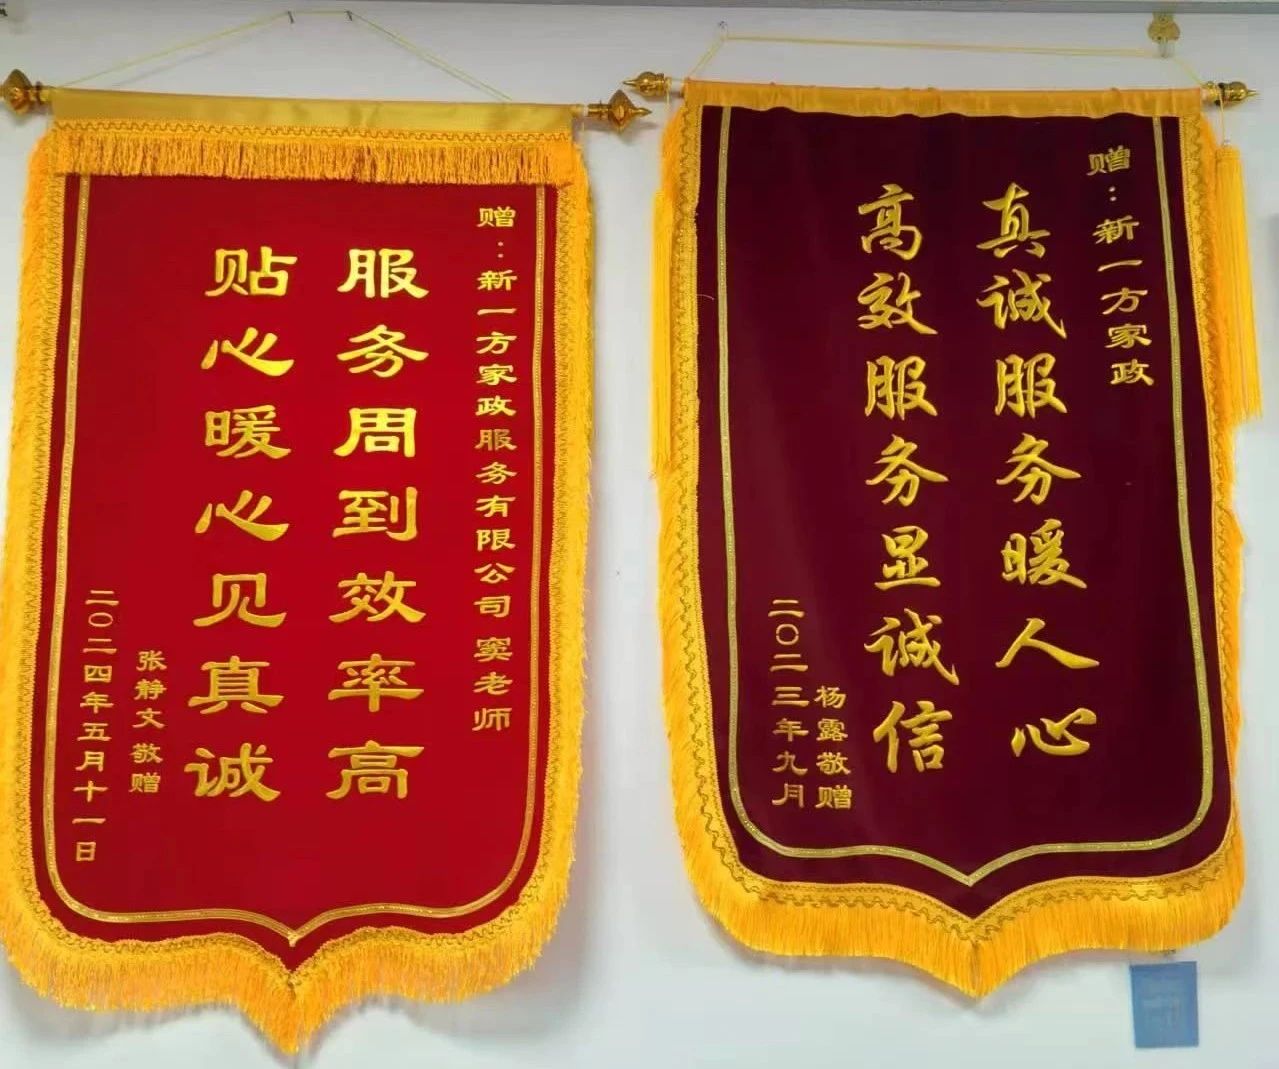 赠：新一方家政服务有限公司 窦老师
服务周到效率高
贴心暖心见真诚
张静文 敬赠
二〇二四年五月十一日
赠：新一方家政
真诚服务暖人心
高效服务显诚信
杨露敬赠
二〇二三年九月